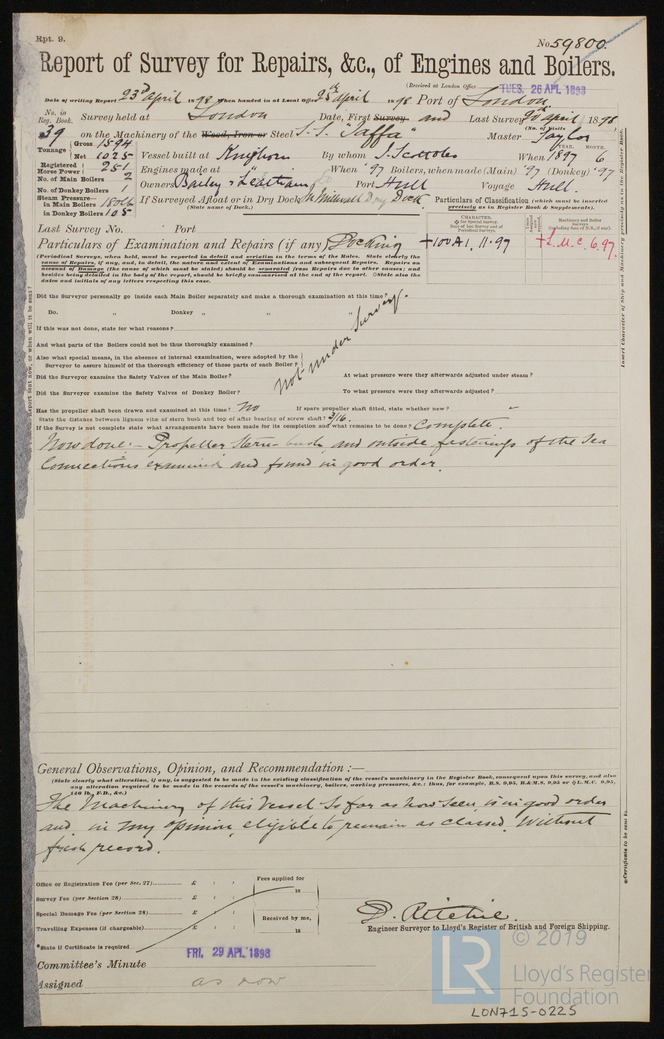 Rpt. 9.
No. 59800.
Report of Survey for Repairs, &c., of Engines and Boilers.
(Received at London Office TUES. 26 APL 1898
Date of writing Report 23d April 1898 When handed in at Local Office 25th April 1898 Port of London
No. in Reg. Book. Survey held at London Date, First Survey and Last Survey 20th April 1898
(No. of Visits
39 on the Machinery of the Wood, Iron or Steel S.S. "Jaffa" Master Taylor
Tonnage Gross 1594
Net 1025
Vessel built at Kinghorn By whom J. Scott & Co When 1897 6
YEAR. MONTH.
Registered Horse Power 251
Engines made at " When "97 Boilers, when made (Main) '97 (Donkey) '97
No. of Main Boilers 2
No. of Donkey Boilers 1
Owners Bailey & Leetham Port Hull Voyage Hull.
Steam Pressure—
in Main Boilers 180 lb
in Donkey Boilers 105
If Surveyed Afloat or in Dry Dock In Millwall Dry Dock.
(State name of Dock.)
Particulars of Classification (which must be inserted
precisely as in Register Book & Supplements).
Last Survey No. Port
CHARACTER.
Particulars of Examination and Repairs (if any) Docking
+100A1. 11.97
+L.M.C. 6.97.
(Periodical Surveys, when held, must be reported in detail and seriatim in the terms of the Rules. State clearly the
cause of Repairs, if any, and, in detail, the nature and extent of Examinations and subsequent Repairs. Repairs on
account of Damage (the cause of which must be stated) should be separated from Repairs due to other causes; and
besides being detailed in the body of the report, should be briefly summarised at the end of the report. State also the
dates and initials of any letters respecting this case.
Did the Surveyor personally go inside each Main Boiler separately and make a thorough examination at this time?
Do. " Donkey " " "
If this was not done, state for what reasons?
And what parts of the Boilers could not be thus thoroughly examined?
Also what special means, in the absence of internal examination, were adopted by the
Surveyor to assure himself of the thorough efficiency of those parts of each Boiler?
Not under Survey.
Did the Surveyor examine the Safety Valves of the Main Boiler? At what pressure were they afterwards adjusted under steam?
Did the Surveyor examine the Safety Valves of Donkey Boiler? To what pressure were they afterwards adjusted?
Has the propeller shaft been drawn and examined at this time? No If spare propeller shaft fitted, state whether new? "
State the distance between lignum vitæ of stern bush and top of after bearing of screw shaft? 3/16
If the Survey is not complete state what arrangements have been made for its completion and what remains to be done? Complete.
Now done:- Propeller Stern bush and outside fastenings of the Sea
Connections examined and found in good order.
General Observations, Opinion, and Recommendation:—
(State clearly what alteration, if any, is suggested to be made in the existing classification of the vessel's machinery in the Register Book, consequent upon this survey, and also
any alteration required to be made in the records of the vessel's machinery, boilers, working pressures, &c.; thus, for example, B.S. 9,95, B.&M.S. 9,95 or L.M.C. 9,95,
140 lb., F.D., &c.)
The Machinery of this Vessel So far as now seen, is in good order
and in my opinion, eligible to remain as classed, without
fresh record.
Office or Registration Fee (per Sec. 27) £ : :
Fees applied for
18
Survey Fee (per Section 28) £ : :
Special Damage Fee (per Section 28) £ : :
Received by me,
Travelling Expenses (if chargeable) £ : :
18
*State if Certificate is required
D. Ritchie.
Engineer Surveyor to Lloyd's Register of British and Foreign Shipping.
FRI. 29 APL 1898
Committee's Minute
Assigned as now
LR
© 2019
Lloyd's Register
Foundation
LON715-0225